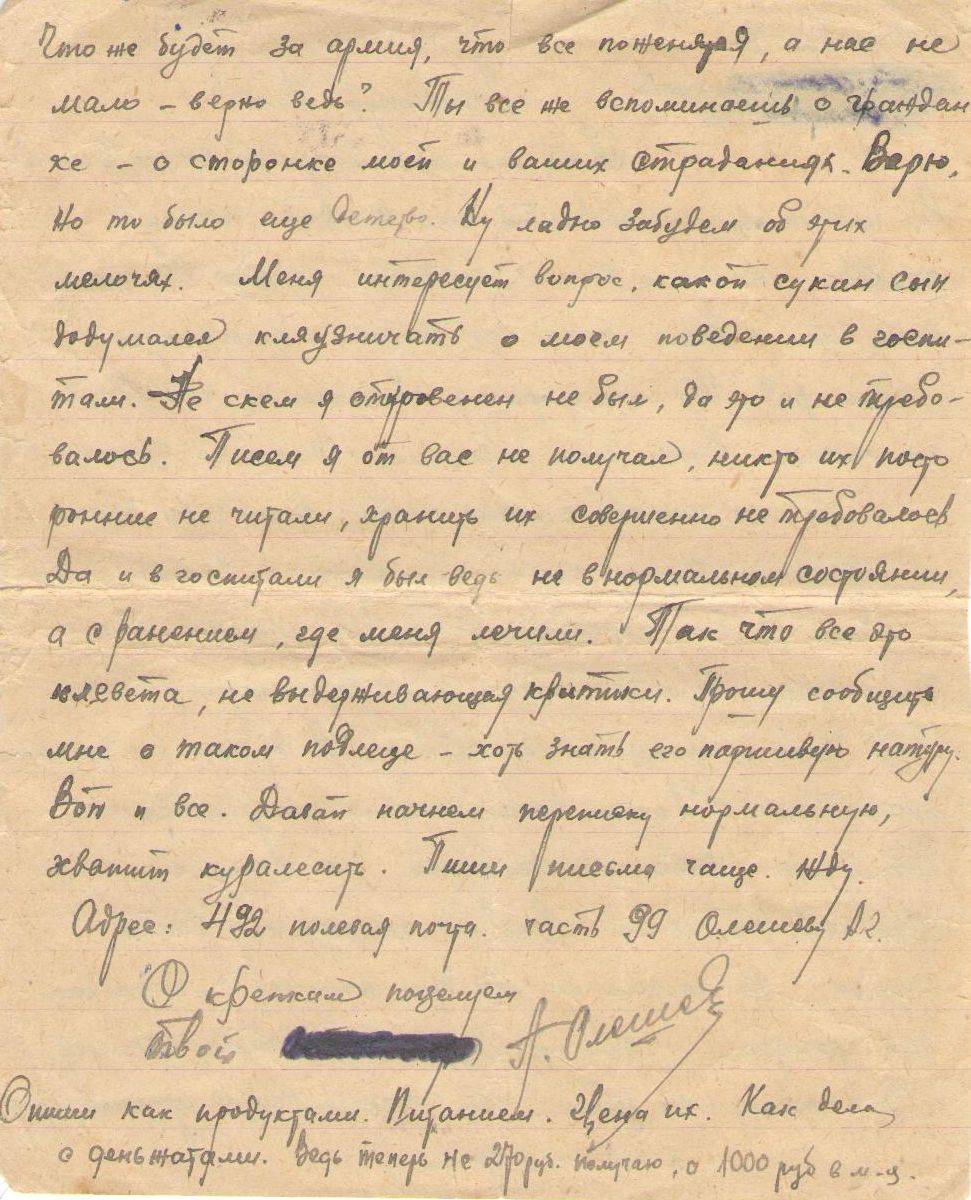 Что же будет за армия, что все поженятся, а нас не
мало – верно ведь? Ты все же вспоминаешь о граждан
ке – о сторонке моей и ваших страданиях. Верю,
Но то было еще детство. Ну ладно забудем об этих
мелочях. Меня интересует вопрос, какой сукин сын
додумался кляузничать о моем поведении в госпи-
тали. Не скем я отеровенен не был, да это и не требо-
валось. Писем я от вас не получал, никто их посто
ронние не читали, хранить их совершенно не требовалось
Да и в госпитали я был ведь не в нормальном состоянии,
а с ранением, где меня лечили. Так что все это
клевета, не выдерживающая критики. Прошу сообщить
мне о таком подлеце – хоть знать его паршивую натуру.
Вот и все. Давай начнем переписку нормальную,
хватит куралесить. Пиши письма чаще. Жду.
Адрес: 492 полевая почта. часть 99 Олешеву А.
С крепким поцелуем
Твой А. Олешев
Опиши как продуктами. Питанием. Цена их. Как дела
с деньжатами. Ведь теперь не 270 руб. получаю, а 1000 руб в м-ц.